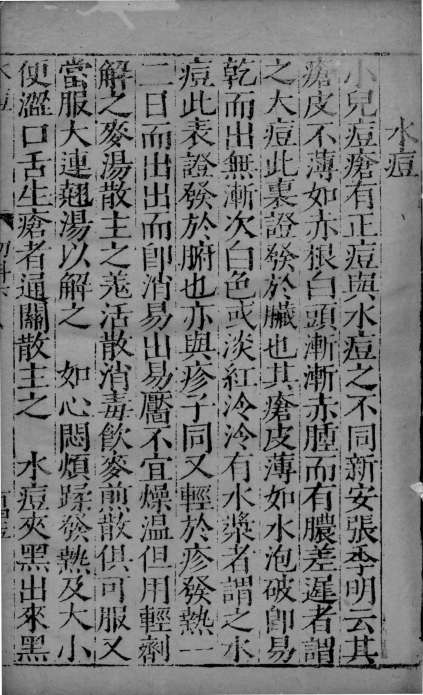 水痘
小兒痘瘡有正痘與水痘之不同新安張季明云其
瘡皮不薄如赤根白頭漸漸赤腫而有膿差遲者謂
之大痘此裏證發於臟也其瘡皮薄如水泡破卽易
乾而出無漸次白色或淡紅冷冷有水漿者謂之水
痘此表證發於腑也亦與疹子同又輕於疹發熱一
二日而出出而卽消易出易靨不宜燥温但用輕劑
解之麥湯散主之羗活散消毒飲麥煎散俱可服又
當服大連翹湯以解之 如心悶煩躁發熱及大小
便澀口舌生瘡者通關散主之 水痘夾黑出來黑
水痘